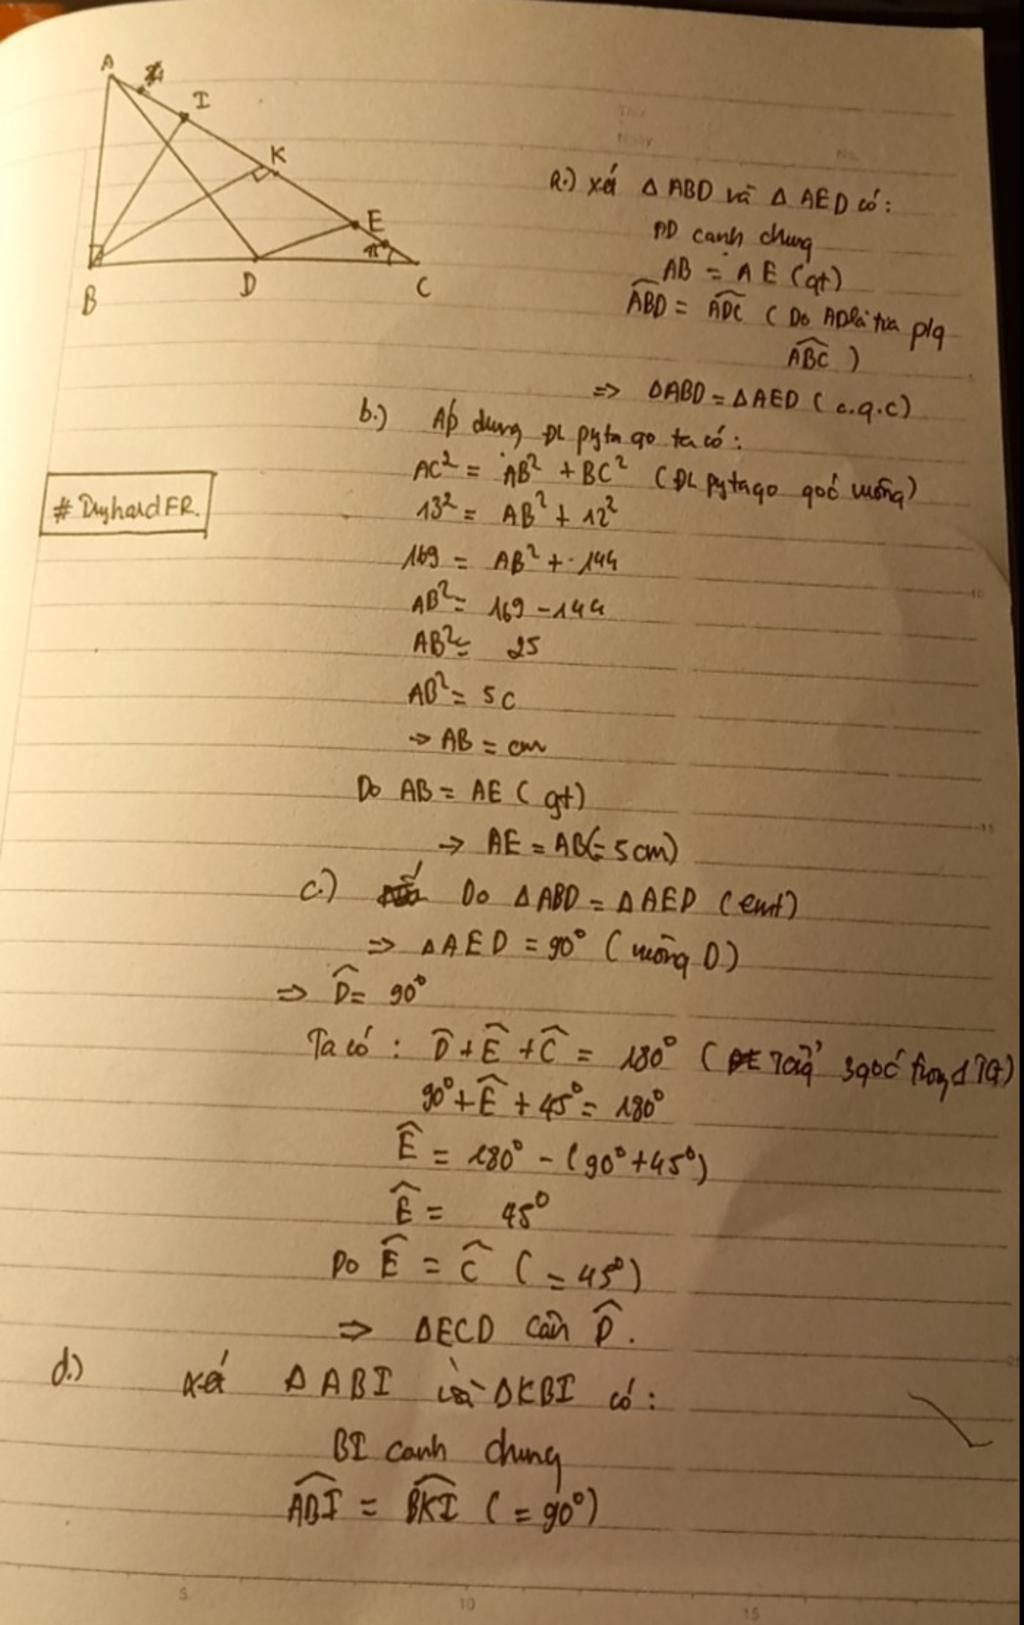 A
I
K
E
45°
B
D
C
a.) xét Δ ABD và Δ AED có:
AD cạnh chung
AB = AE (gt)
ABD = ADC (Do AD là tia p/g
ABC )
=> ΔABD = ΔAED ( c.g.c)
b.) Áp dụng ĐL pytago ta có:
AC² = AB² + BC² (ĐL pytago góc vuông)
13² = AB² + 12²
169 = AB² + 144
AB² = 169 - 144
AB² = 25
AB² = 5c
→ AB = cm
# DuyhardFR.
Do AB = AE ( gt)
→ AE = AB(= 5cm)
c.) Do ΔABD = ΔAED (cmt)
=> ΔAED = 90° ( vuông D)
=> D̂ = 90°
Ta có : D̂ + Ê + Ĉ = 180° ( 3 góc trong 1 TG)
90° + Ê + 45° = 180°
Ê = 180° - (90° + 45°)
Ê = 45°
Do Ê = Ĉ ( = 45°)
=> ΔECD cân D̂.
d.) xét ΔABI và ΔKBI có :
BI cạnh chung
ABI = BKI ( = 90°)
5
10
15